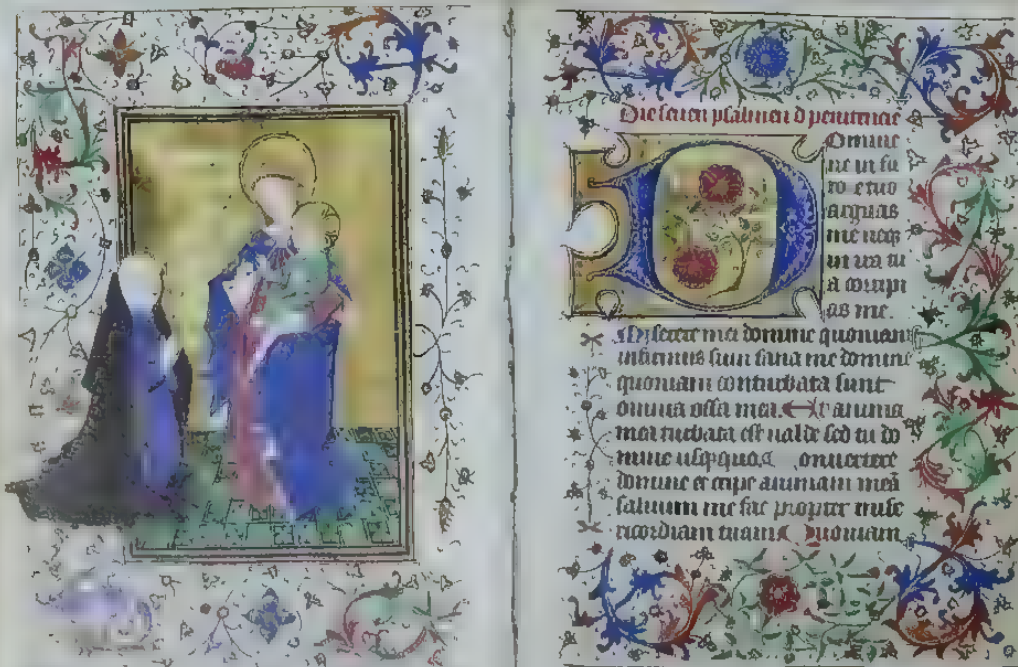 Die seuen psalmen d penitencie
Domine
ne in fu
rore tuo
arguas
me neq
in ira tu
a corripi
as me.
Miserere mei domine quoniam
infirmus sum sana me domine
quoniam conturbata sunt
omnia ossa mea. Et anima
mea turbata est ualde sed tu do
mine usqquo. Conuertere
domine et eripe animam meā
saluum me fac propter mise
ricordiam tuam. Quoniam